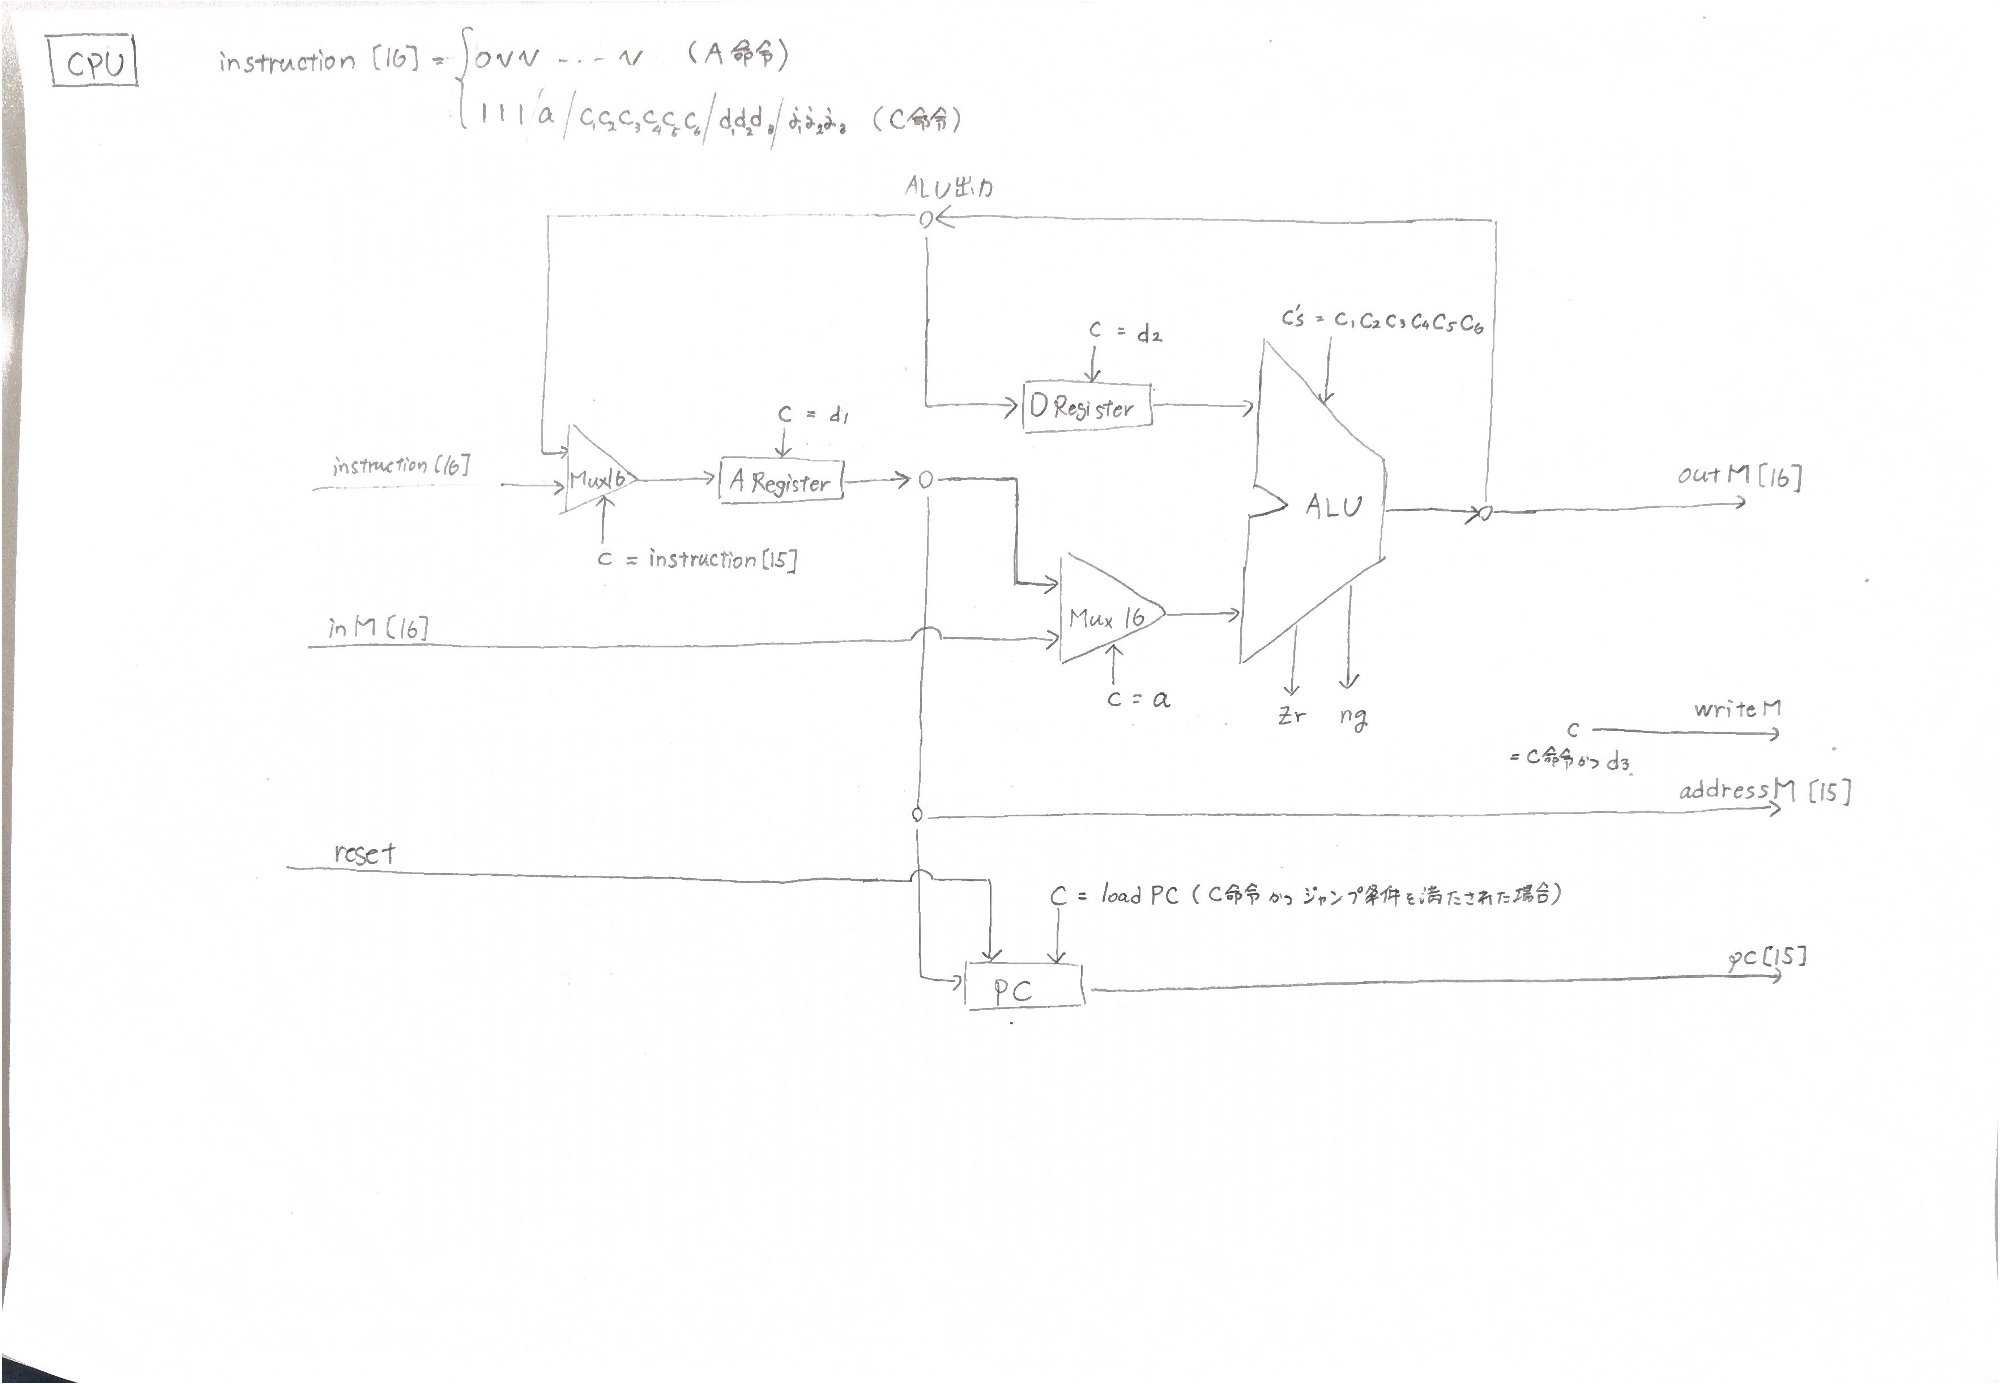 CPU
instruction [16] = { 0vv ... v (A命令)
111/a/c₁c₂c₃c₄c₅c₆/d₁d₂d₃/j₁j₂j₃ (C命令)
ALU出力
C's = C₁C₂C₃C₄C₅C₆
C = d₂
D Register
C = d₁
instruction [16]
Mux16
A Register
ALU
outM [16]
C = instruction [15]
inM [16]
Mux 16
C = a
Zr ng
writeM
C
= C命令かつ d3
addressM [15]
reset
C = load PC (C命令かつジャンプ条件を満たされた場合)
PC
pc [15]